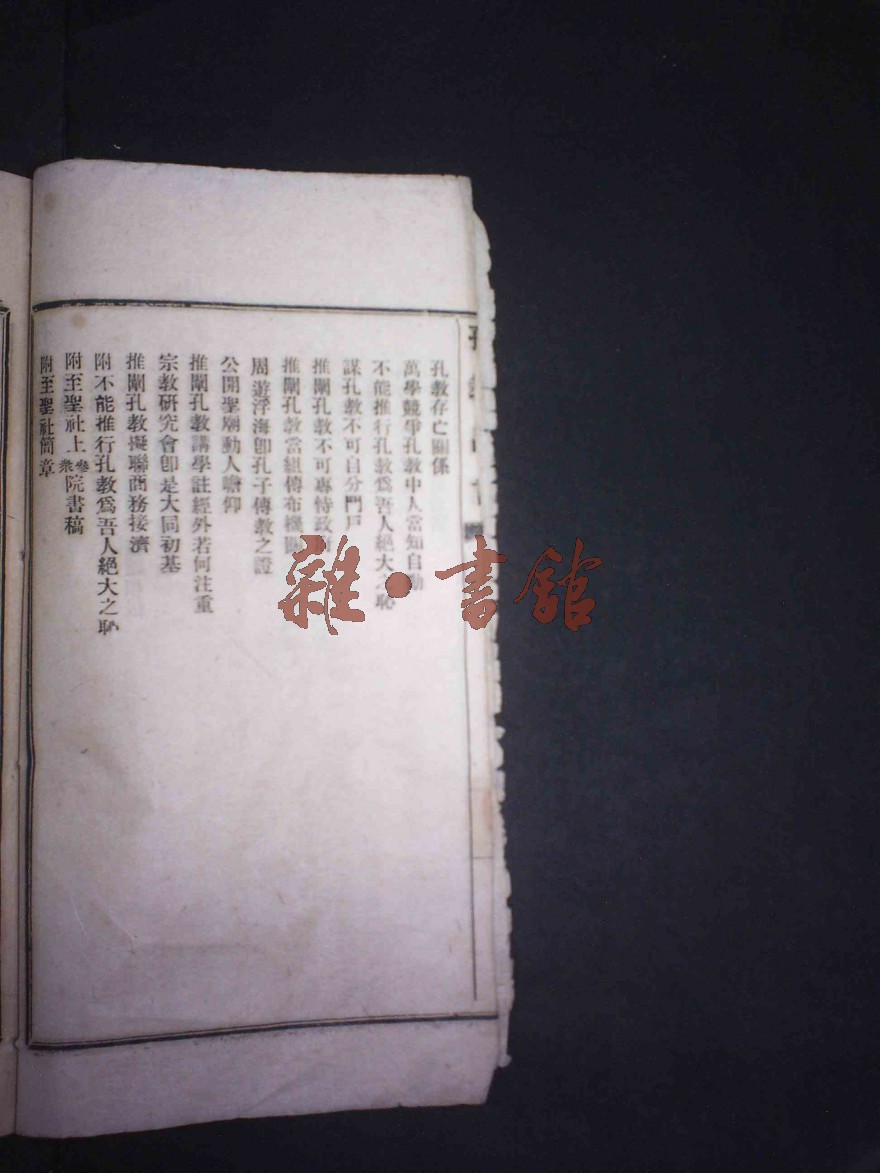 孔教存亡關係
萬學競爭孔教中人當知自動
不能推行孔教爲吾人絕大之恥
謀孔教不可自分門戶
推闡孔教不可專恃政府
推闡孔教當組傳布機關
周遊浮海卽孔子傳教之證
公開聖廟動人瞻仰
推闡孔教講學註經外若何注重
宗教硏究會卽是大同初基
推闡孔教擬聯商務接濟
附不能推行孔教爲吾人絕大之恥
附至聖社上參衆院書稿
附至聖社簡章
雜·書館